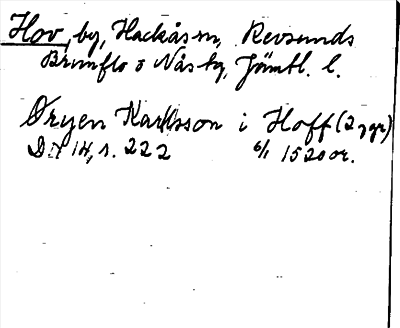 Hov, by, Hackås sn, Revsunds
Brunflo o Näs tg, Jämtl. l.
Øryen Karlsson i Hoff (2 ggr)
DN 14, s. 222 6/1 1520 or.